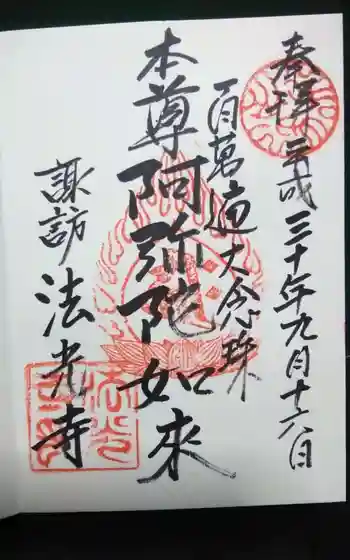 奉拝 平成三十年九月十六日
百萬遍大念珠
本尊阿弥陀如来
諏訪法光寺